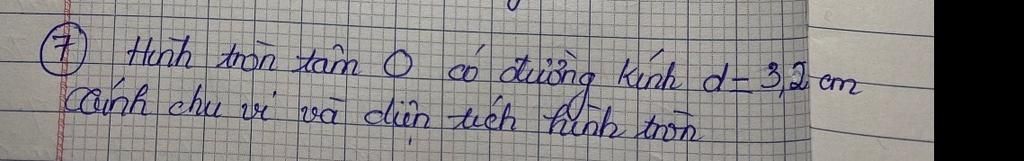 ⑦ Hình tròn tâm O có đường kính d = 3,2 cm
Tính chu vi và diện tích hình tròn